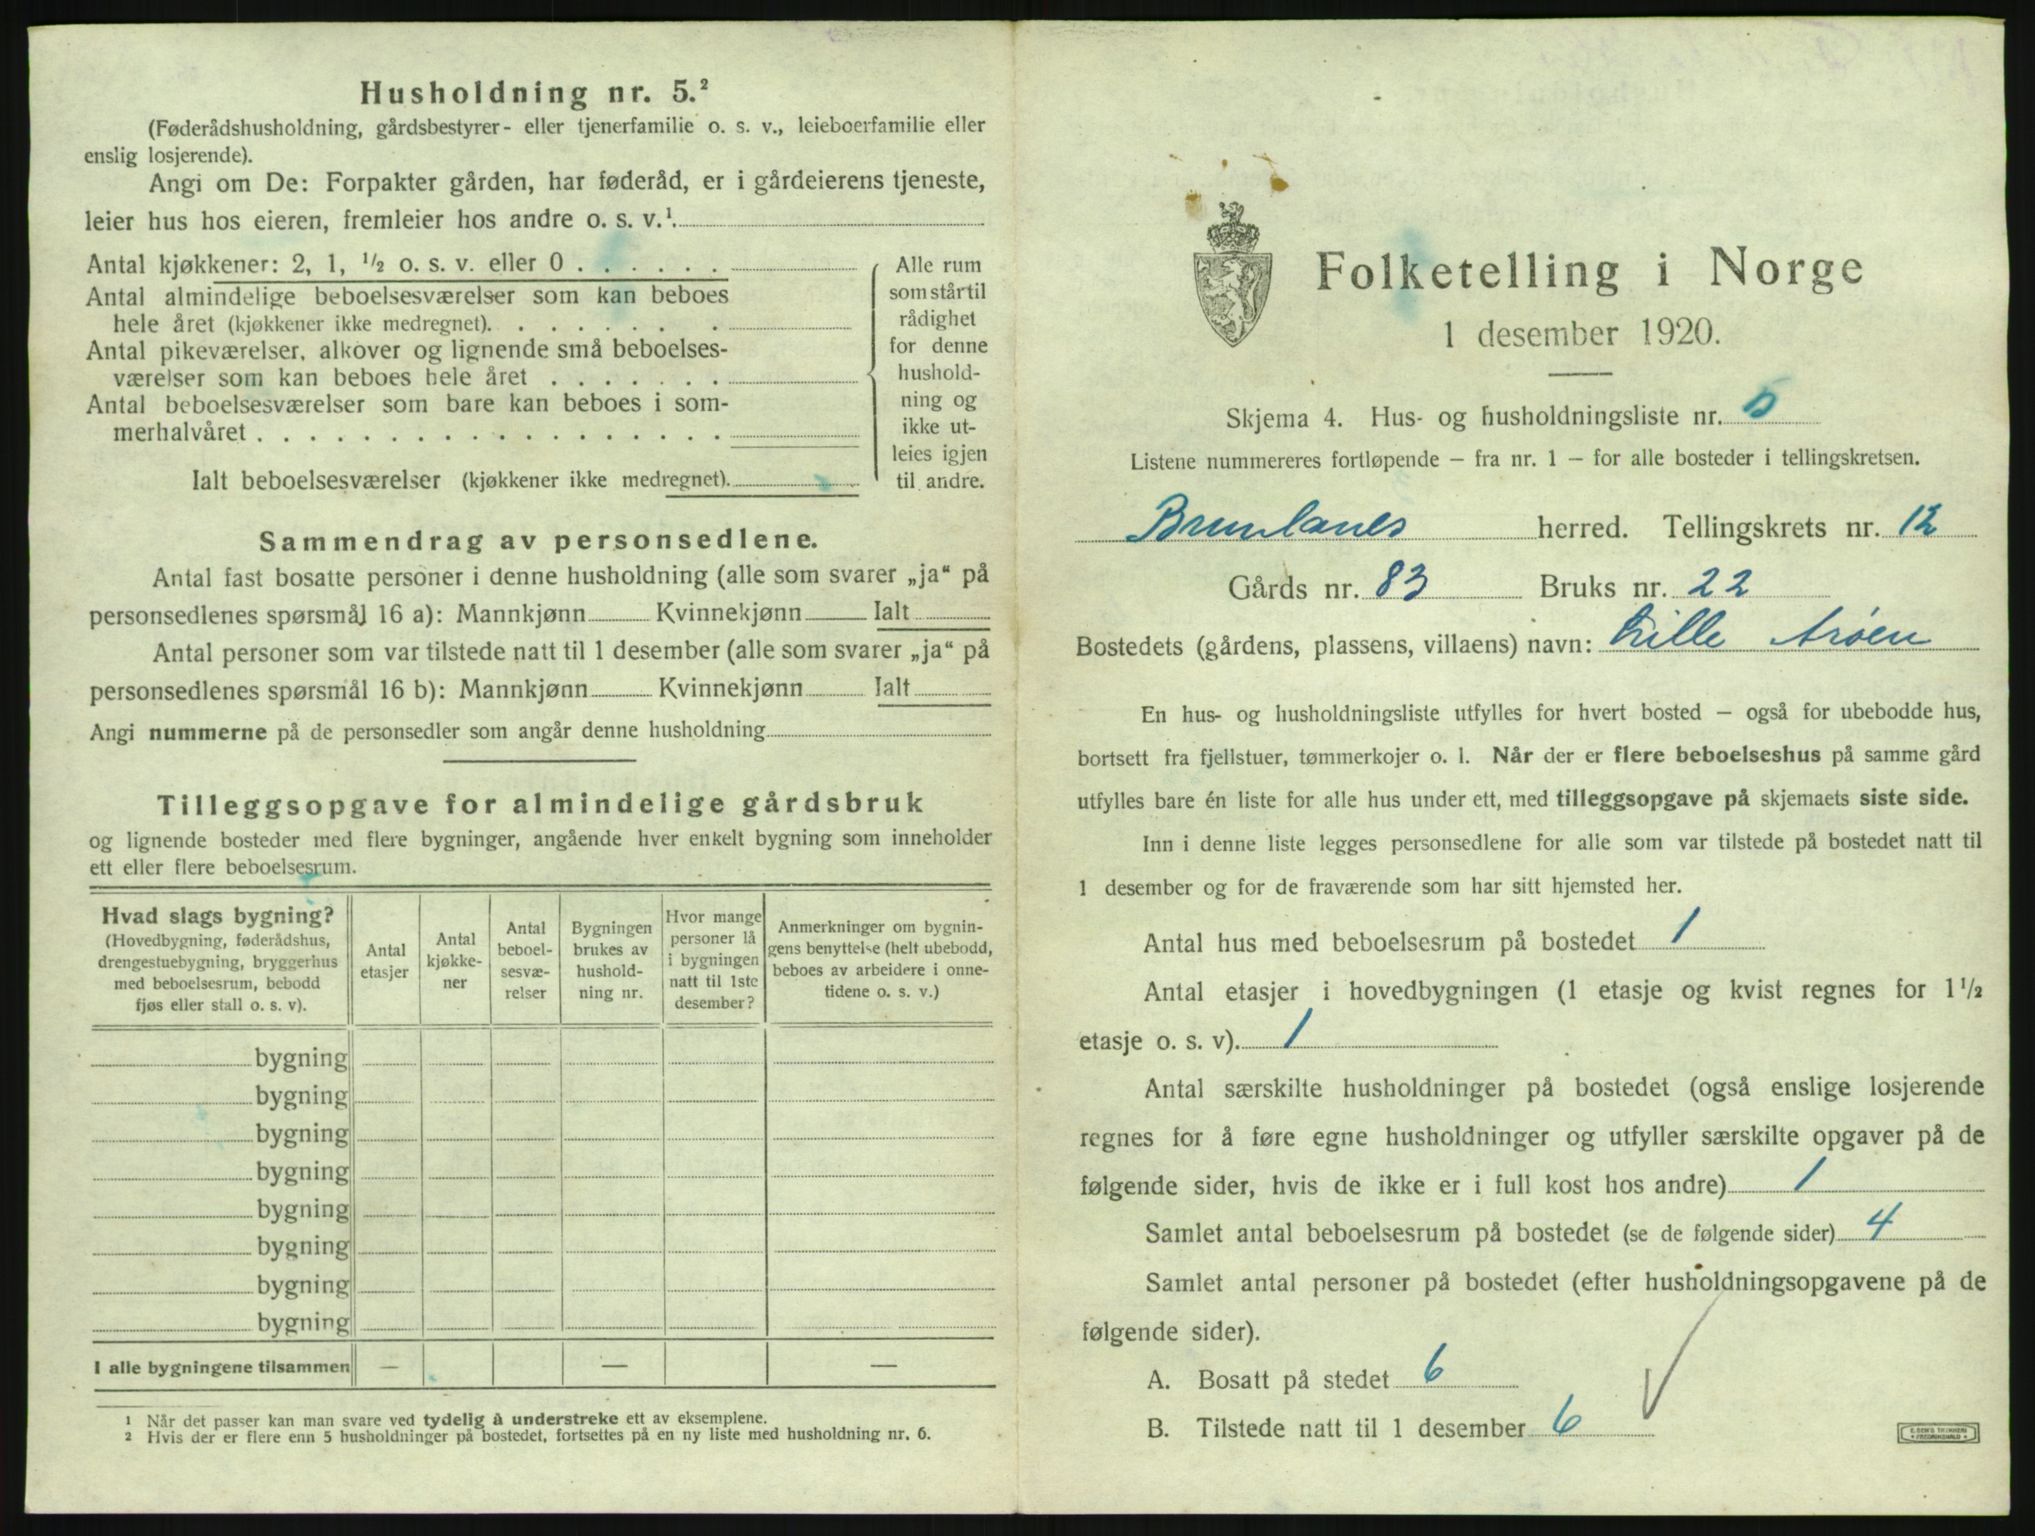 Husholdning nr. 5.²
(Føderådshusholdning, gårdsbestyrer- eller tjenerfamilie o. s. v., leieboerfamilie eller
enslig losjerende).
Angi om De: Forpakter gården, har føderåd, er i gårdeierens tjeneste,
leier hus hos eieren, fremleier hos andre o. s. v.¹.
Antal kjøkkener: 2, 1, ½ o. s. v. eller 0 . . . . . .
Antal almindelige beboelsesværelser som kan beboes
hele året (kjøkkener ikke medregnet). . . . . . . . .
Antal pikeværelser, alkover og lignende små beboelses-
værelser som kan beboes hele året . . . . . . .
Antal beboelsesværelser som bare kan beboes i som-
merhalvåret . . . . . . . . . . . . . . . . . .
Ialt beboelsesværelser (kjøkkener ikke medregnet).
Alle rum
som står til
rådighet
for denne
hushold-
ning og
ikke ut-
leies igjen
til andre.
Sammendrag av personsedlene.
Antal fast bosatte personer i denne husholdning (alle som svarer „ja“ på
personsedlenes spørsmål 16 a): Mannkjønn Kvinnekjønn Ialt
Antal personer som var tilstede natt til 1 desember (alle som svarer „ja“ på
personsedlenes spørsmål 16 b): Mannkjønn Kvinnekjønn Ialt
Angi nummerne på de personsedler som angår denne husholdning
Tilleggsopgave for almindelige gårdsbruk
og lignende bosteder med flere bygninger, angående hver enkelt bygning som inneholder
ett eller flere beboelsesrum.
Hvad slags bygning?
(Hovedbygning, føderådshus,
drengestuebygning, bryggerhus
med beboelsesrum, bebodd
fjøs eller stall o. s. v).
Antal
etasjer
Antal
kjøkke-
ner
Antal
beboel-
sesvæ-
relser
Bygningen
brukes av
hushold-
ning nr.
Hvor mange
personer lå
i bygningen
natt til 1ste
desember?
Anmerkninger om bygnin-
gens benyttelse (helt ubebodd,
beboes av arbeidere i onne-
tidene o. s. v.)
bygning
bygning
bygning
bygning
bygning
bygning
bygning
bygning
I alle bygningene tilsammen — — —
¹ Når det passer kan man svare ved tydelig å understreke ett av eksemplene.
² Hvis der er flere enn 5 husholdninger på bostedet, fortsettes på en ny liste med husholdning nr. 6.
Folketelling i Norge
1 desember 1920.
Skjema 4. Hus- og husholdningsliste nr. 5
Listene nummereres fortløpende — fra nr. 1 — for alle bosteder i tellingskretsen.
Brunlanes herred. Tellingskrets nr. 12
Gårds nr. 83 Bruks nr. 22
Bostedets (gårdens, plassens, villaens) navn: Lille Arøen
En hus- og husholdningsliste utfylles for hvert bosted — også for ubebodde hus,
bortsett fra fjellstuer, tømmerkojer o. l. Når der er flere beboelseshus på samme gård
utfylles bare én liste for alle hus under ett, med tilleggsopgave på skjemaets siste side.
Inn i denne liste legges personsedlene for alle som var tilstede på bostedet natt til
1 desember og for de fraværende som har sitt hjemsted her.
Antal hus med beboelsesrum på bostedet 1
Antal etasjer i hovedbygningen (1 etasje og kvist regnes for 1½
etasje o. s. v). 1
Antal særskilte husholdninger på bostedet (også enslige losjerende
regnes for å føre egne husholdninger og utfyller særskilte opgaver på de
følgende sider, hvis de ikke er i full kost hos andre) 1
Samlet antal beboelsesrum på bostedet (se de følgende sider) 4
Samlet antal personer på bostedet (efter husholdningsopgavene på de
følgende sider).
A. Bosatt på stedet 6
B. Tilstede natt til 1 desember 6